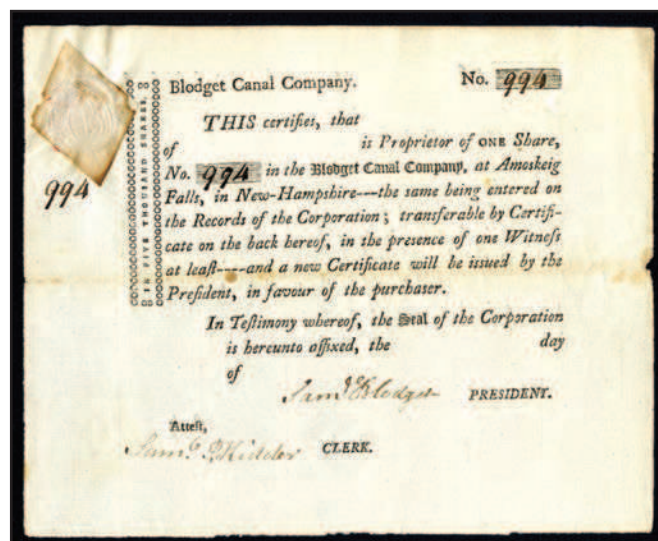 Blodget Canal Company. No. 994
THIS certifies, that
of is Proprietor of ONE Share,
No. 994 in the Blodget Canal Company, at Amoskeig
Falls, in New-Hampshire---the same being entered on
the Records of the Corporation; transferable by Certifi-
cate on the back hereof, in the presence of one Witneſs
at leaſt----and a new Certificate will be issued by the
Preſident, in favour of the purchaser.
In Teſtimony whereof, the Seal of the Corporation
is hereunto affixed, the day
of
Saml Blodget PRESIDENT.
Atteſt,
Saml P. Kidder CLERK.
994
IN FIVE THOUSAND SHARES.